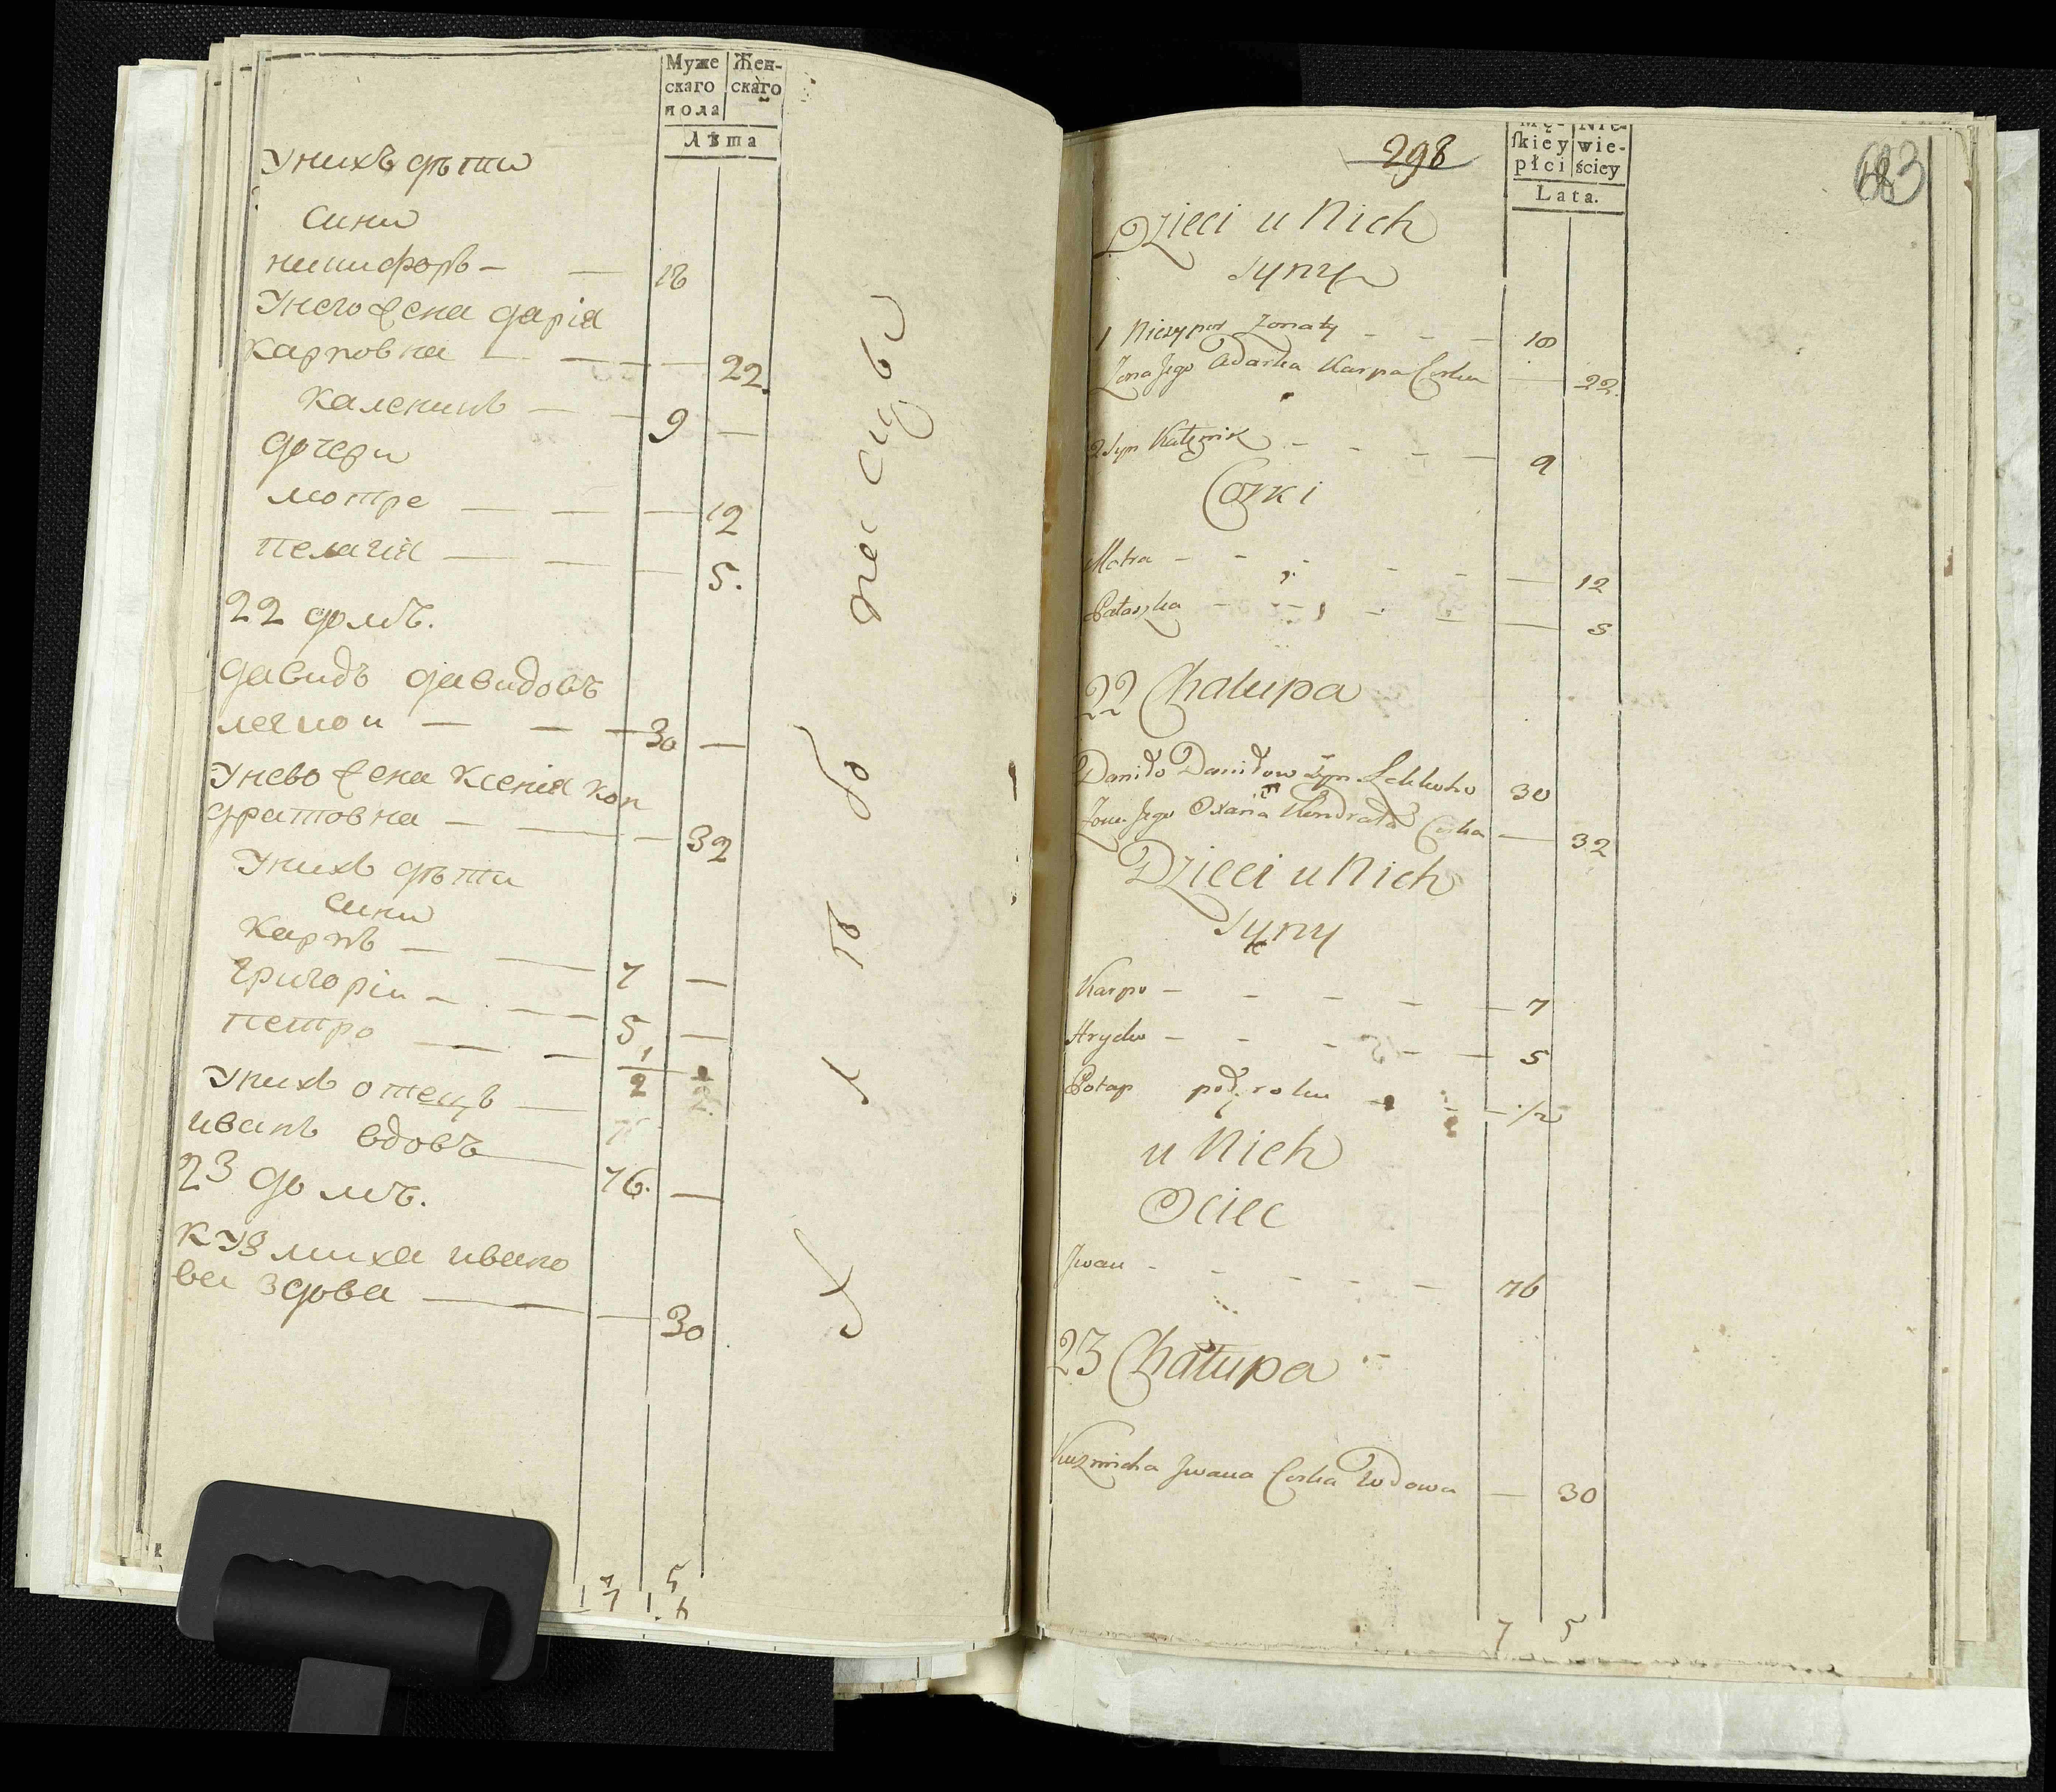 Муже Жен-
скаго скаго
пола
Лѣта
Унихъ дѣти
сини
никифоръ — — 18
Унего жена дарія
карповна — — — 22.
каленикъ — — 9 —
дочери
мотре — — — 12
пелагія — — — 5.
22 домъ.
давидъ давидовъ
— — — 30 —
Унево жена Ксенія кон
дратовна — — — 32
Унихъ дѣти
сини
Карпъ — — 7 —
григоріи — — 5 —
петро — — 1/2
Унихъ отецъ —
иванъ вдовъ — 76. —
23 домъ.
кузмиха ивано
ва здова — — — 30
7 5
298
Mę- Nie-
skiey wie-
płci ściey
Lata.
Dzieci u Nich
Syny
1 Niczypor Zonaty - - - 18
Zona Jego Adarka Karpa Corka — 22.
2 Syn Kalęnik - - - — 9
Corki
Motra - - - - - — 12
Pałaszka - - - - — 5
22 Chalupa
Daniło Daniłow Syn 30
Zona Jego Oxana Kondrata Corka — 32
Dzieci u Nich
Syny
Karpo - - - - — 7
Hrycko - - - - — 5
Potap poł roku - - — 1/2
u Nich
Ociec
Jwan - - - - - 76
23 Chałupa
Kuzmicha Jwana Corka Wdowa — 30
7 5